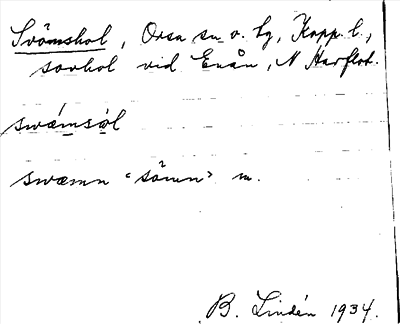 Svömshol, Orsa sn o. hg, Kopp. l.,
sovhol vid Enån, N Harflot.
swǽmsòl
swæmn "sömn" m.
B. Lindén 1934.